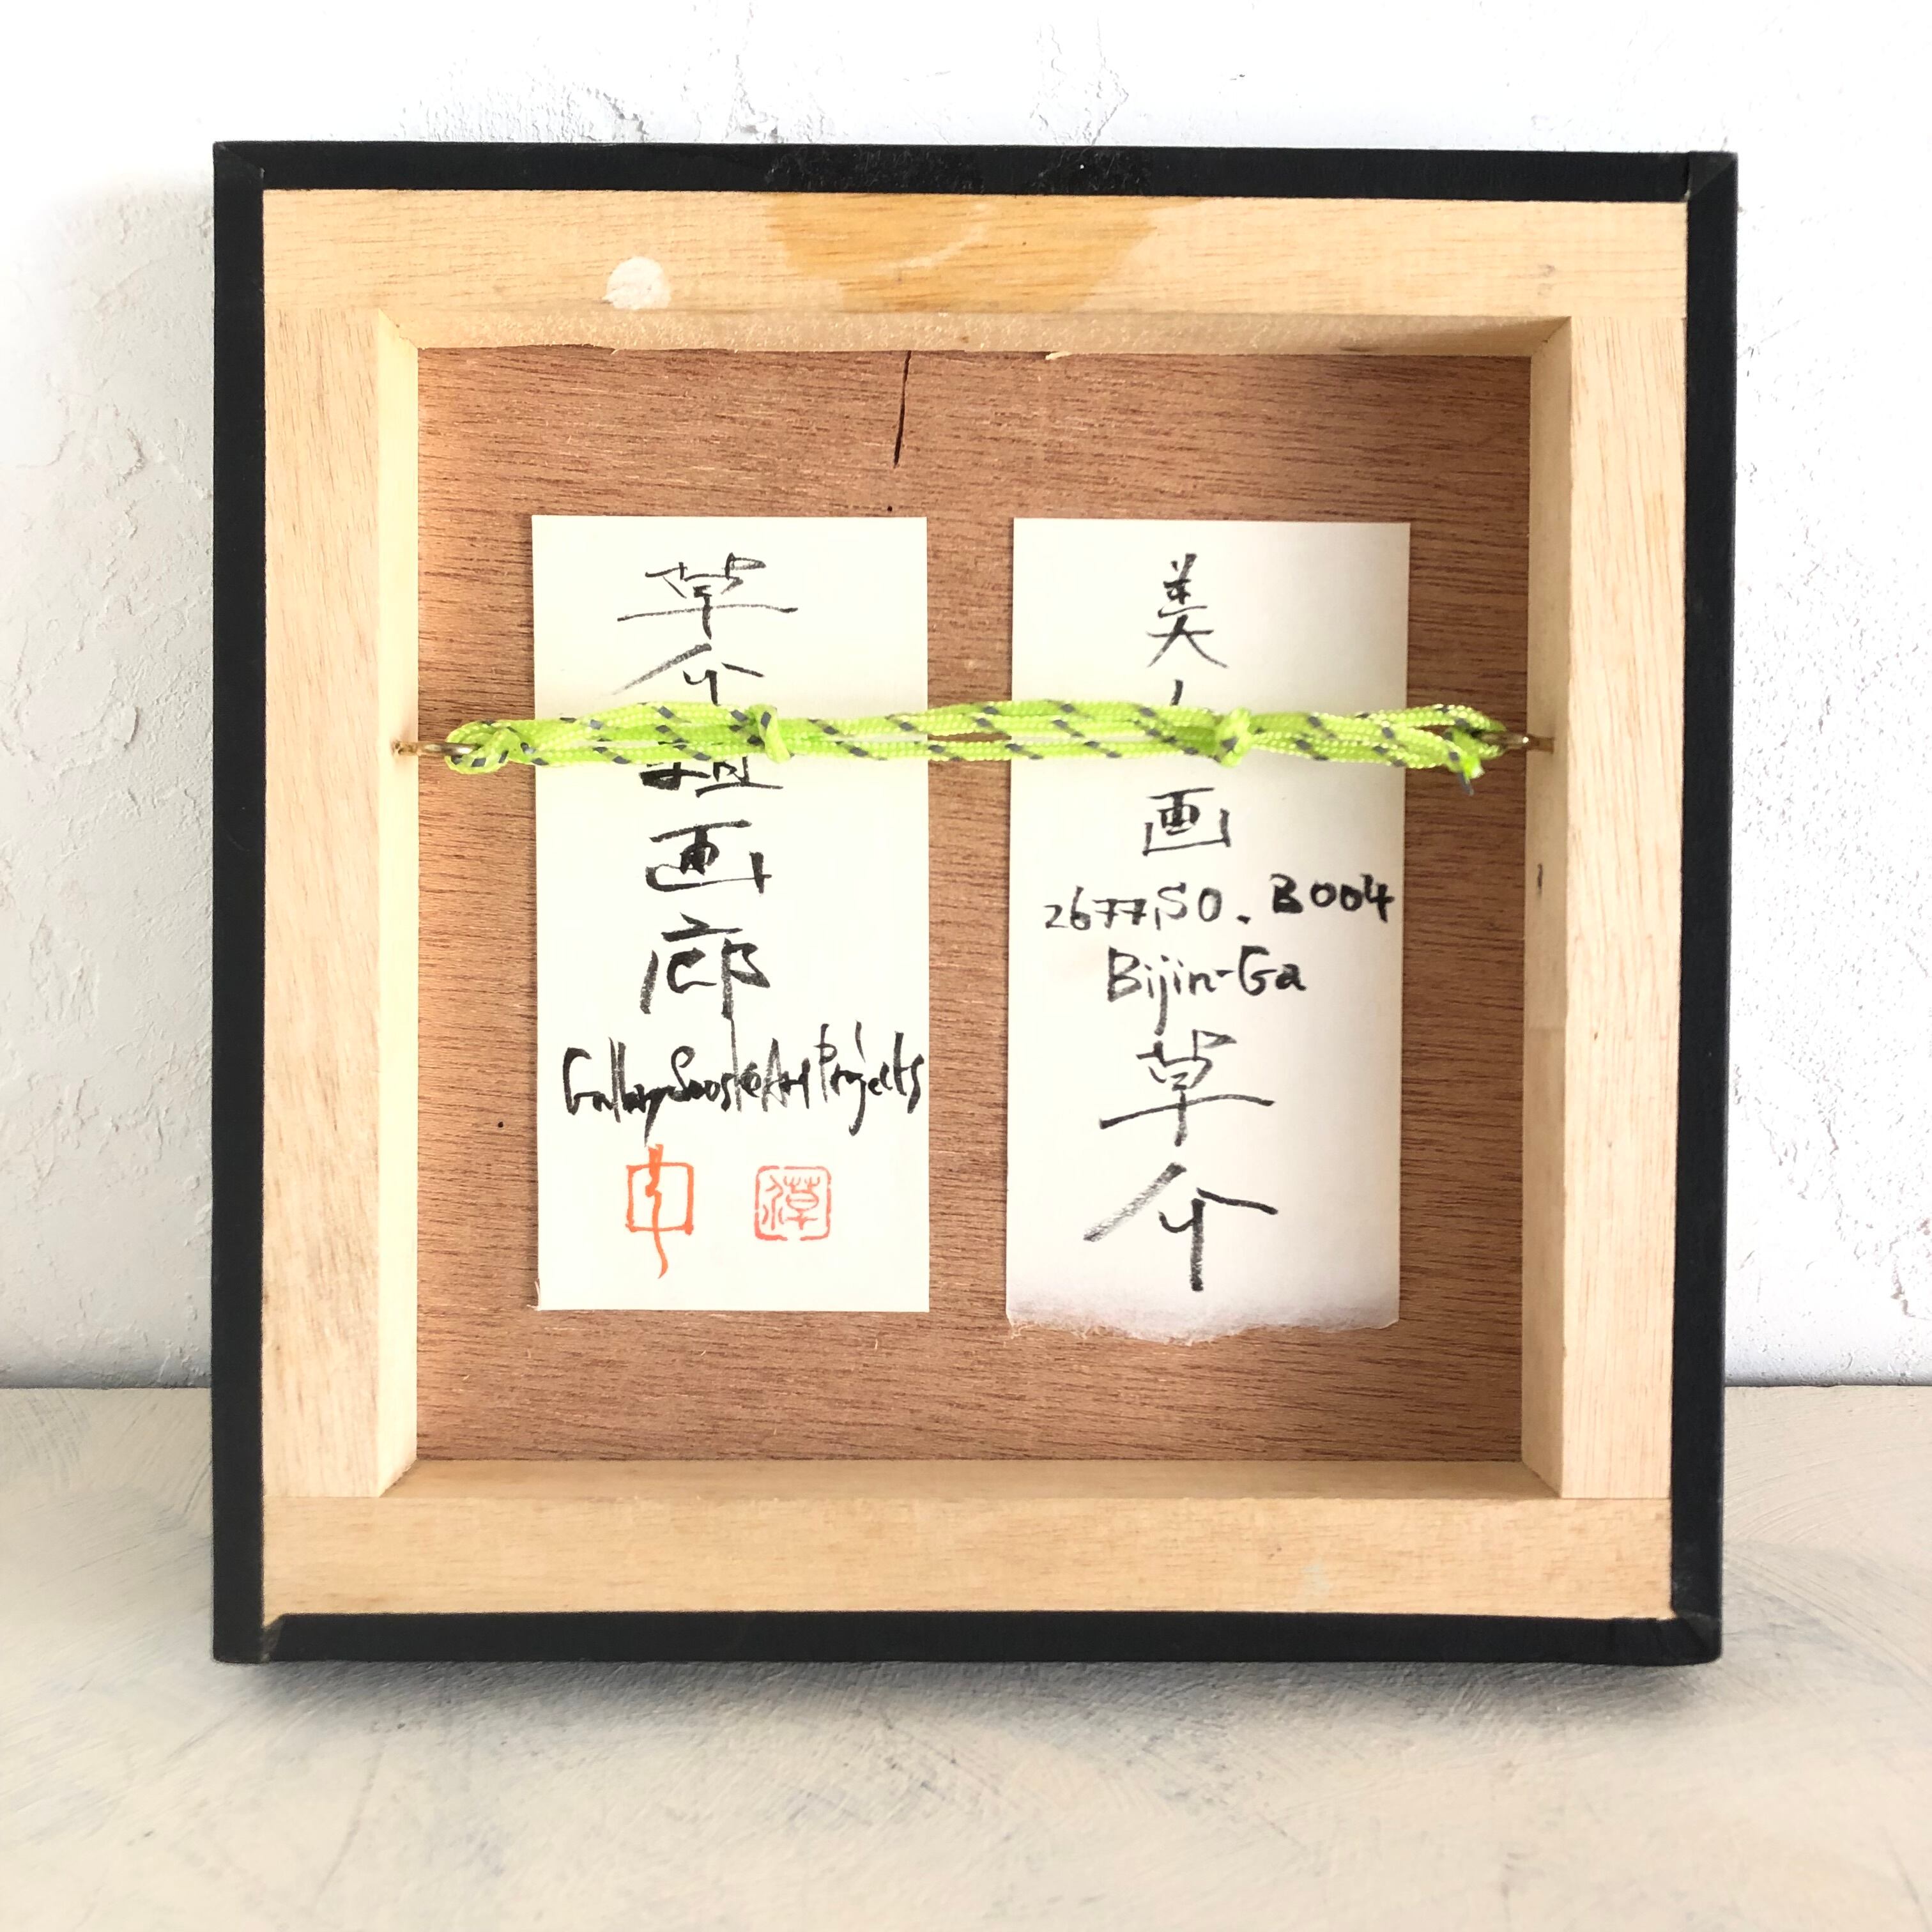 草
介
画
廊
Gallery Sooske Art Projects
草
美
画
2677,SO. B004
Bijin-Ga
草
介